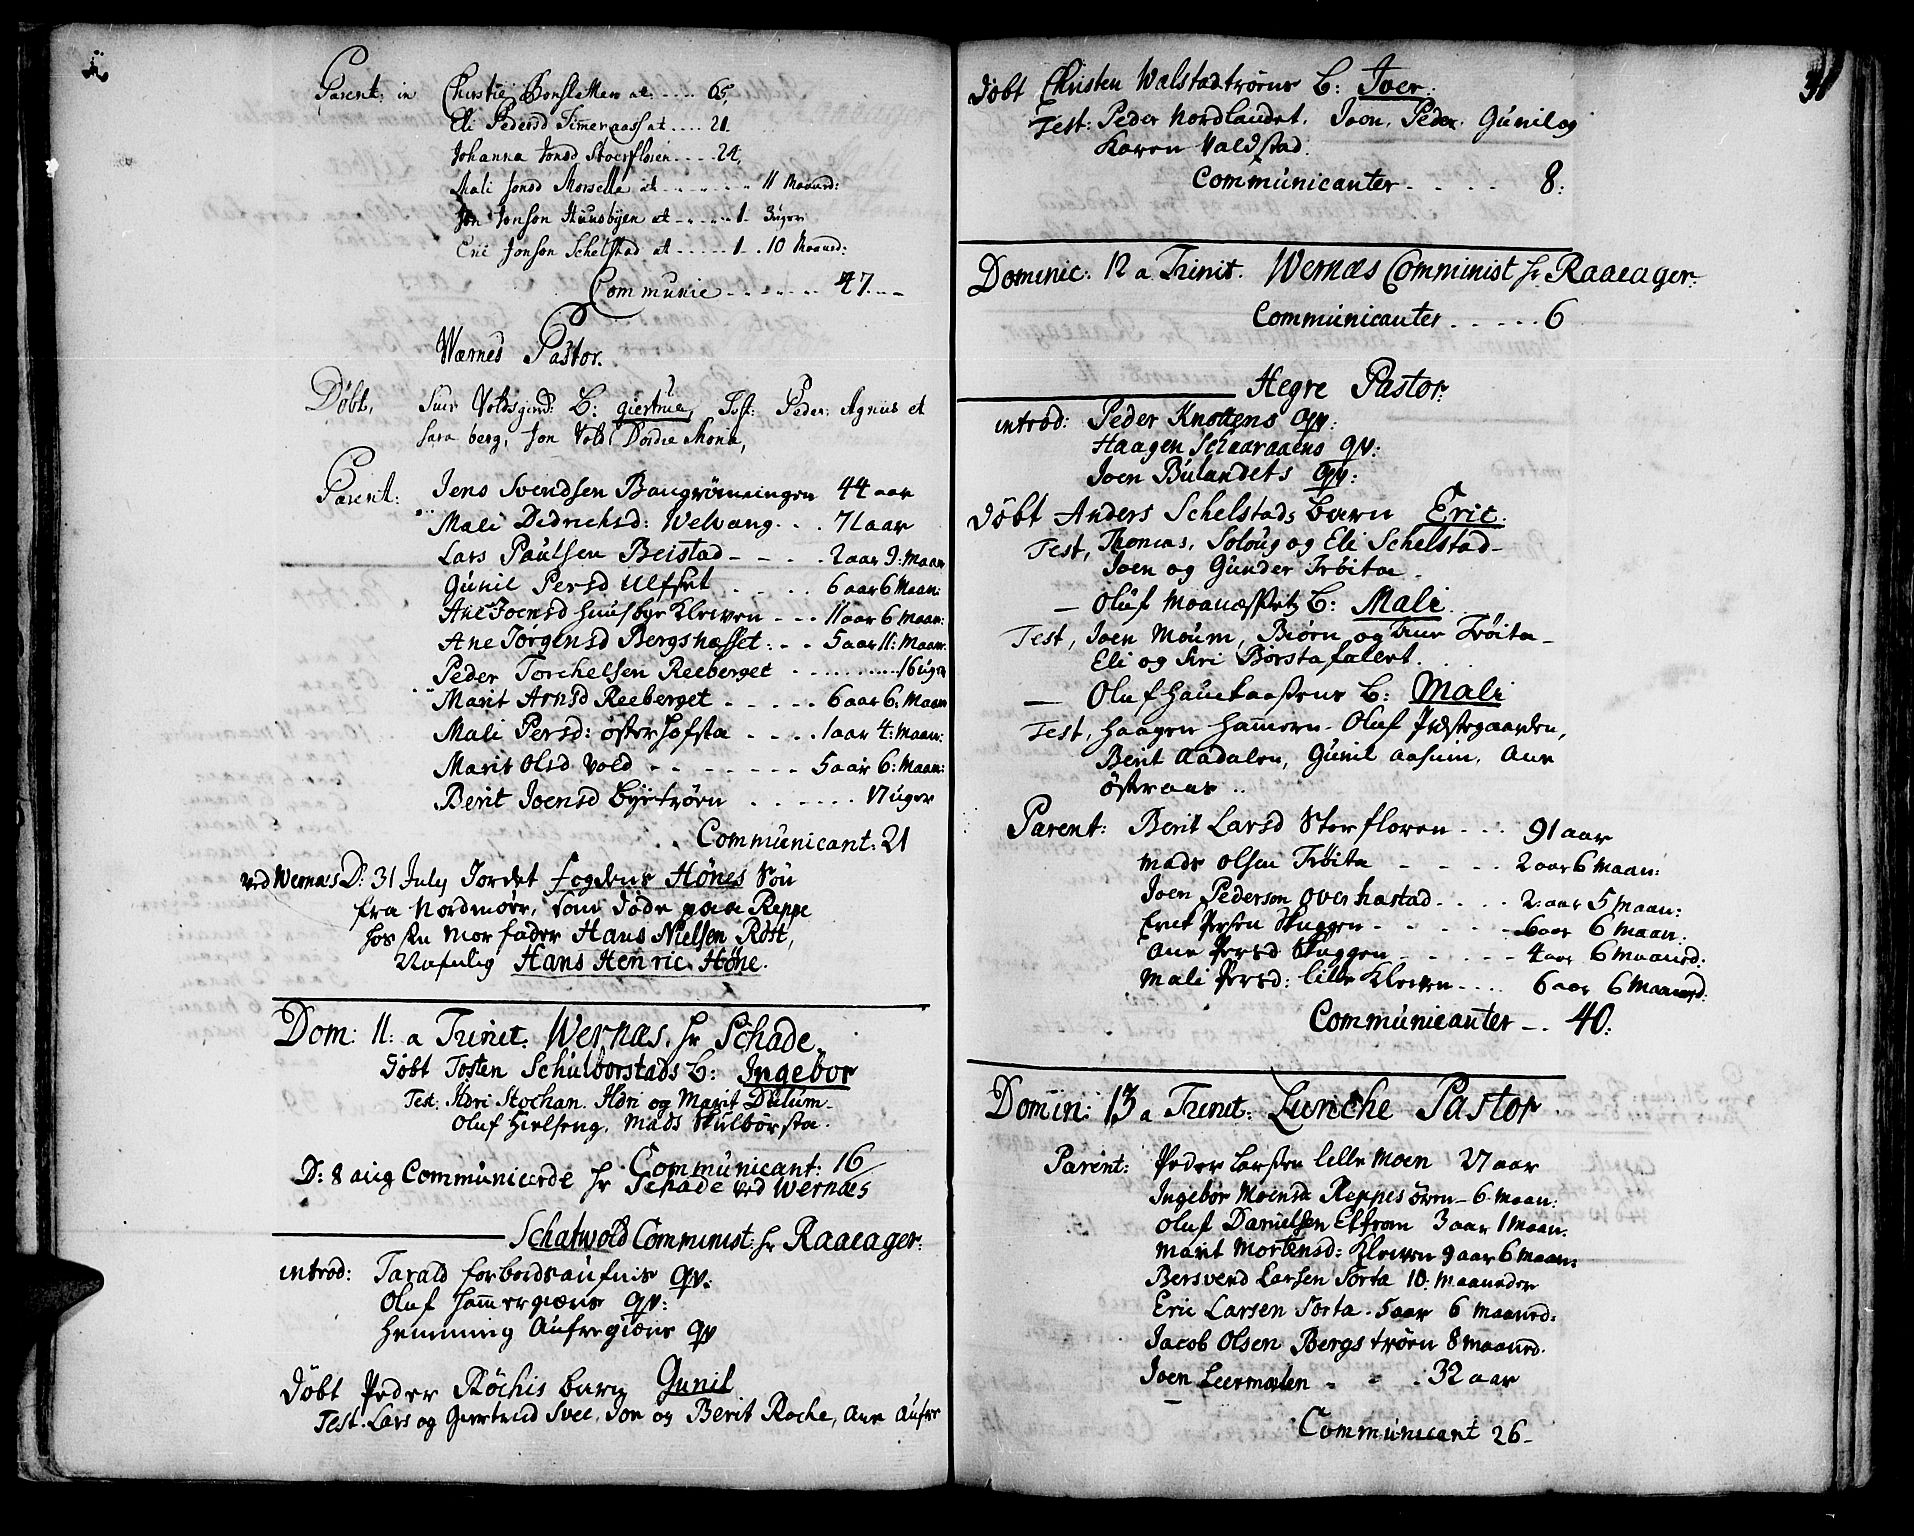 Parent: in Christie Bonsletten æt: .... 65,
Eli Pedersd Timeraas æt .... 21.
Johanna Jonsd Stoerfloren .... 24,
Mali Jonsd Morsetta æt ....... 11 Maaned:
Jon Jonson Huusbyen æt ...... 1. 3uger
Eric Jonson Schelstad æt ..... 1 .. 10 Maaned:
Communic ....... 47...
Wærnes Pastor.
Døbt, Voldsgind: B: giertrue, Test: Peder, Agniis et
Sara berg, Jon Vold, Dordie Mona,
Parent: Jens Svendsen Bangrømningen 44 aar
Mali Didrichsd: Welvang... 71 aar
Lars Paulsen Beistad - - - . 2 aar 9: Maan
Gunil Persd Ulfset - . . . . 6 aar 6 Maan:
Ane Joensd Huusbye Kleiven - - - 11 aar 6 maan:
Ane Jørgensd Bergshasset: . - 5 aar 11: Maan:
Peder Torchelsen Reeberget .......... 16 uger
Marit Arnsd Reeberget - - - - - 6 aar 6. Maan
Mali Persd: øster Hofsta - . . . 1 aar 4: Maan:
Marit Olsd Vold - - - - - - - 5 aar 6: Maan:
Berit Joensd Byetrøen ...... 17 uger
Communicant: 21
ved Wernæs D: 31 July Jordet fogdens Hönes Søn
fra Nordmøer, som døde paa Reppe
hos sin Morfader Hans Nielsen Röst,
Nafnlig Hans Henric Höne.
Dom: 11: a Trinit. Wernæs. hr Schade.
døbt Tosten Schulborstads B: Ingebor
Test: Stochan. og Marit Dulum-
Oluf Hielseng, Mads Skulbørsta.
Communicant: 16
D: 8 aug Communicerde hr Schade ved Wernæs
Schatwold Comminist: hr Raaeager:
introd: Tarald forbordsaufnis qv:
Oluf Hammergiæns qv:
Hemming Aufregiæns qv
døbt Peder Röchis barn Gunil
Test: Lars og Giertrud Svee, Jon og Berit Roche, Ane Aufre
31
døbt Christen Walstadtröens B: Joer:
Test: Peder Nordlandet, Joen, Peder, Gunil og
Karen Valdstad.
Communicanter - . . . . 8:
Dominic: 12 a Trinit. Wernæs Comminist hr Raaeager:
Communicanter ..... 6
Hegre Pastor:
introd: Peder Knottens qv:
Haagen Schaaraaens qv:
Joen Bulandets qv:
døbt Anders Schelstads barn Eric.
Test, Thomas, Solvug og Eli Schelstad-
Joen og Gunder Tröita -
- Oluf Moanæssets B: Mali.
Test, Joen Moum, Biörn og Ane Tröita-
Eli og Siri Börstafalert.
- Oluf Hauckaasens B: Mali
Test, Haagen Hammern- Oluf Præstegaarden,
Berit Aadalen, Gunil Aasum, Ane
östraas ..
Parent: Berit Larsd Storfloren - - - 91 aar
Mads Olsen Tröita - - - - 2 aar 6 maan:
Joen Pederson Overhastad . . . . 2: aar 5 maan:
Eric Persen Skuggen - - - - - 6 aar 6 maan.
Ane Persd Skuggen - - - - - 4 aar 6 maaned:
Mali Persd: lille Kleiven .... 6 aar 6 maaned:
Communicanter - . 40:
Domin: 13 a Trinit: Luncke Pastor
Parent: Peder Larsen lille moen 27 aar
Ingebor Moensd Reppesören- 6. maan:
Oluf Danielsen Elfrom 3 aar 1 maan.
Marit Mortensd: Kleiven 9 aar 6 maan:
Bersvend Larsen Sorta 10. maaneder
Eric Larsen Sorta. 5 aar 6 maaned:
Jacob Olsen Bergstrøen 8 maaned.
Joen Leermælen - - . 32 aar
Communicant 26-